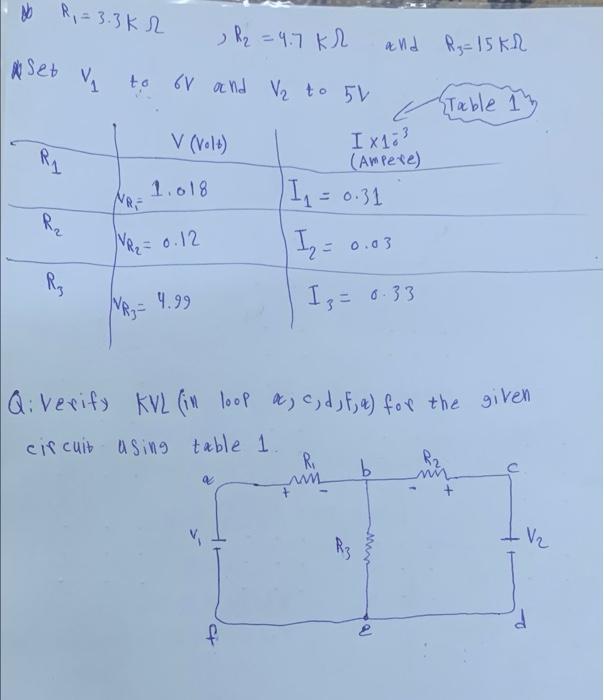 R₁ = 3.3 k Ω , R₂ = 4.7 kΩ and R₃ = 15 kΩ
Set V₁ to 6V and V₂ to 5V
Table 1
V (Volt) I x10⁻³
(Ampere)
R₁ VR₁= 1.018 I₁ = 0.31
R₂ VR₂= 0.12 I₂ = 0.03
R₃ VR₃= 4.99 I₃ = 0.33
Q: Verify KVL (in loop a, c, d, f, a) for the given
circuit using table 1.
a R₁ b R₂ c
+ - - +
V₁ R₃ V₂
f e d